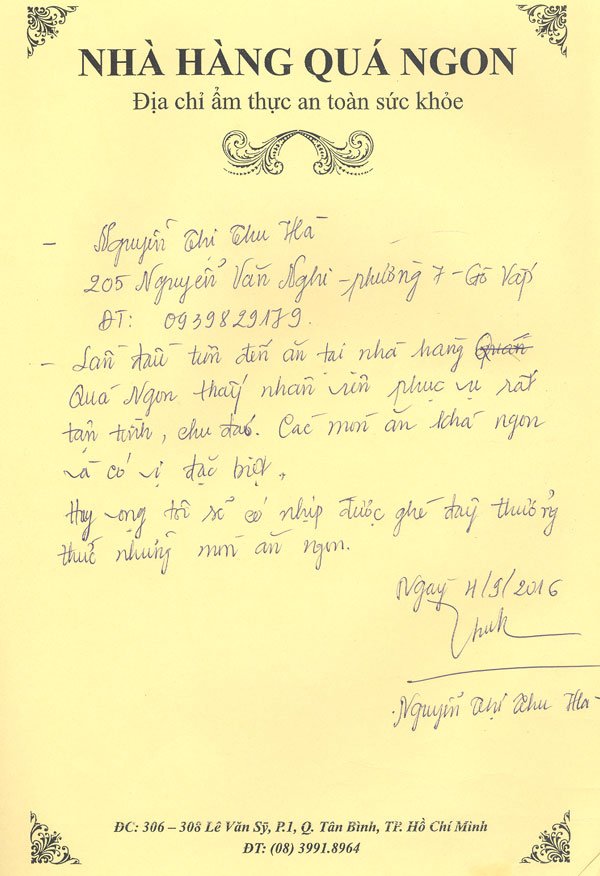 NHÀ HÀNG QUÁ NGON
Địa chỉ ẩm thực an toàn sức khỏe
- Nguyễn Thị Thu Hà
205 Nguyễn Văn Nghi - phường 7 - Gò Vấp
ĐT: 0939829179.
- Lần đầu tiên đến ăn tại nhà hàng Quán
Quá Ngon thấy nhân viên phục vụ rất
tận tình, chu đáo. Các món ăn khá ngon
và có vị đặc biệt.
Hy vọng tôi sẽ có nhịp được ghé đây thưởng
thức những món ăn ngon.
Ngày 4/9/2016
Nguyễn Thị Thu Hà
ĐC: 306 – 308 Lê Văn Sỹ, P.1, Q. Tân Bình, TP. Hồ Chí Minh
ĐT: (08) 3991.8964